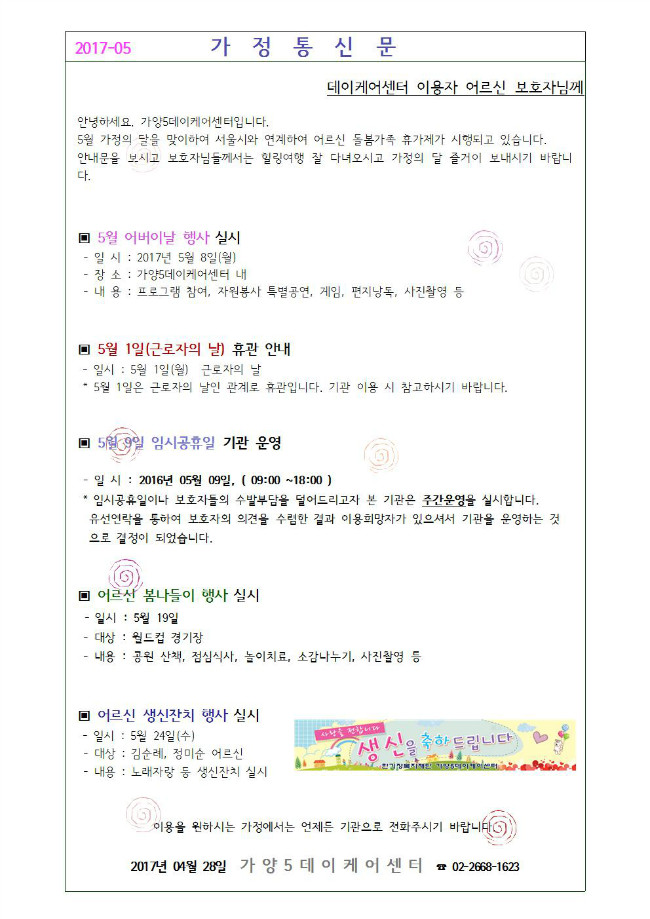 2017-05 가 정 통 신 문
데이케어센터 이용자 어르신 보호자님께
안녕하세요. 가양5데이케어센터입니다.
5월 가정의 달을 맞이하여 서울시와 연계하여 어르신 돌봄가족 휴가제가 시행되고 있습니다.
안내문을 보시고 보호자님들께서는 힐링여행 잘 다녀오시고 가정의 달 즐거이 보내시기 바랍니
다.
▣ 5월 어버이날 행사 실시
- 일 시 : 2017년 5월 8일(월)
- 장 소 : 가양5데이케어센터 내
- 내 용 : 프로그램 참여, 자원봉사 특별공연, 게임, 편지낭독, 사진촬영 등
▣ 5월 1일(근로자의 날) 휴관 안내
- 일시 : 5월 1일(월) 근로자의 날
* 5월 1일은 근로자의 날인 관계로 휴관입니다. 기관 이용 시 참고하시기 바랍니다.
▣ 5월 9일 임시공휴일 기관 운영
- 일 시 : 2016년 05월 09일, ( 09:00 ~18:00 )
* 임시공휴일이나 보호자들의 수발부담을 덜어드리고자 본 기관은 주간운영을 실시합니다.
유선연락을 통하여 보호자의 의견을 수렴한 결과 이용희망자가 있으셔서 기관을 운영하는 것
으로 결정이 되었습니다.
▣ 어르신 봄나들이 행사 실시
- 일시 : 5월 19일
- 대상 : 월드컵 경기장
- 내용 : 공원 산책, 점심식사, 놀이치료, 소감나누기, 사진촬영 등
▣ 어르신 생신잔치 행사 실시
- 일시 : 5월 24일(수)
- 대상 : 김순례, 정미순 어르신
- 내용 : 노래자랑 등 생신잔치 실시
사랑을 전합니다
생신을 축하드립니다
가양5데이케어센터
이용을 원하시는 가정에서는 언제든 기관으로 전화주시기 바랍니다.
2017년 04월 28일 가 양 5 데 이 케 어 센 터 ☎ 02-2668-1623